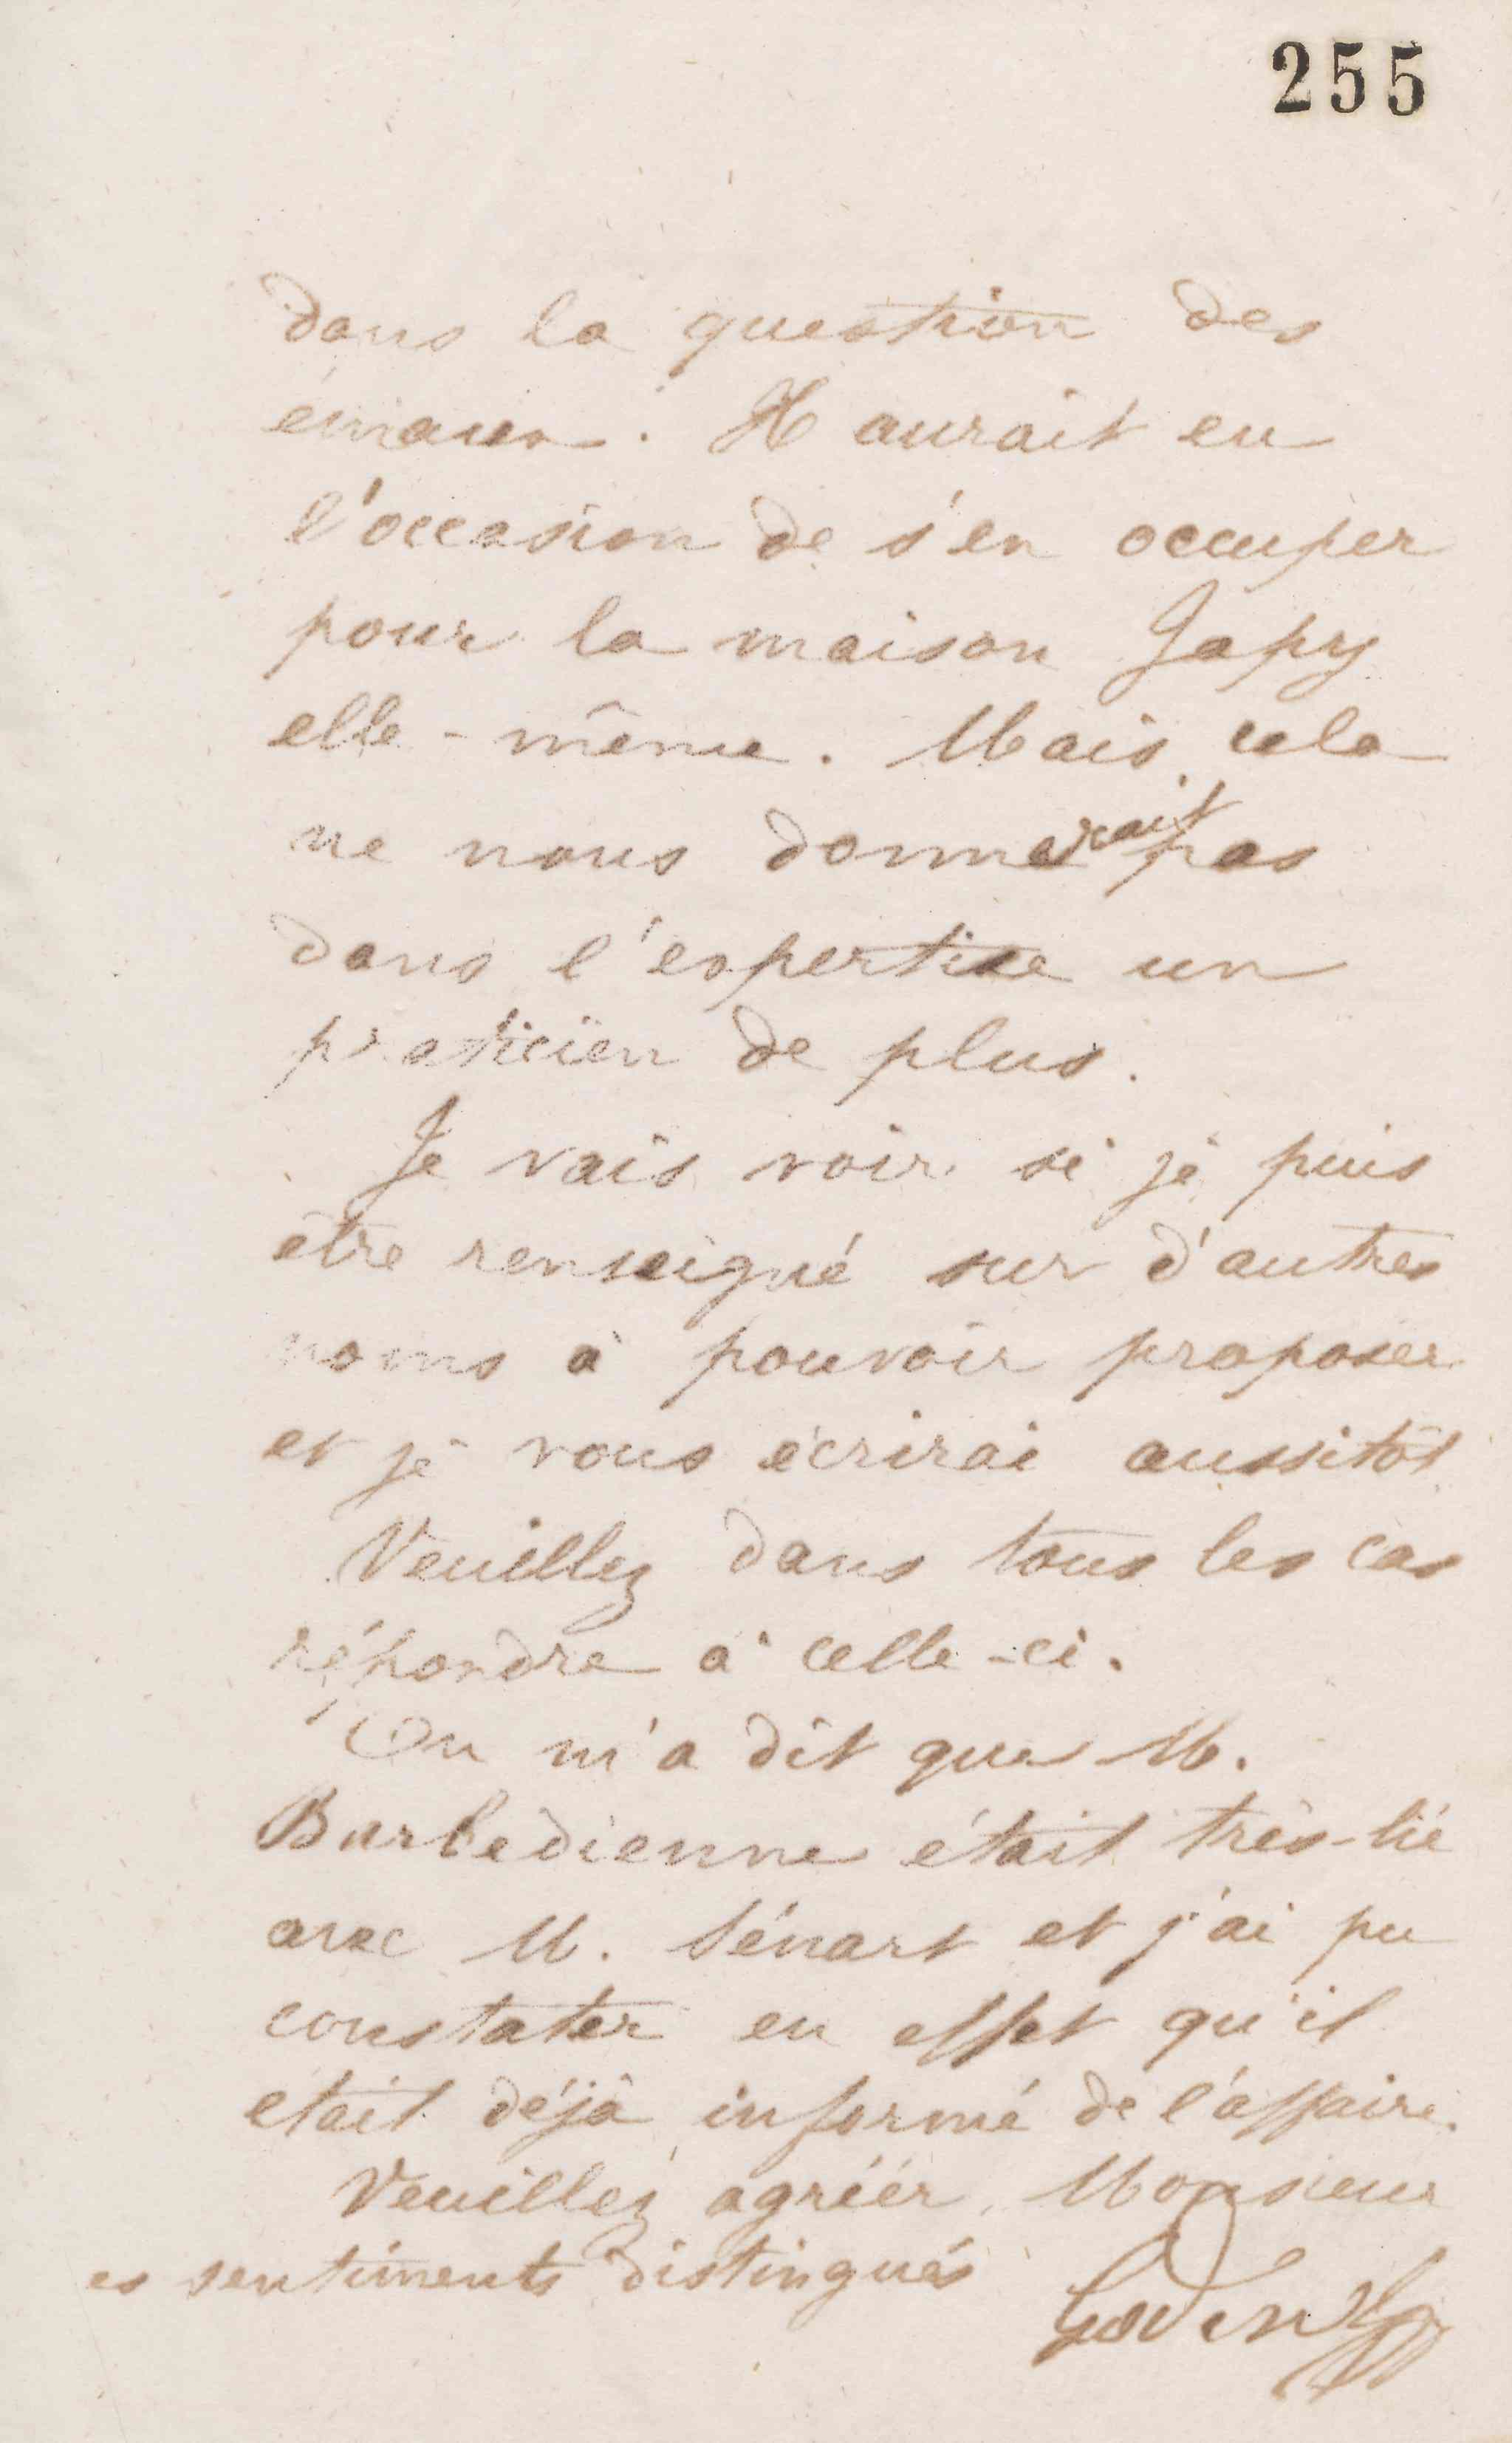 255
dans la question des
émaux. Il aurait eu
l'occasion de s'en occuper
pour la maison Japy
elle-même. Mais cela
ne nous donnerait pas
dans l'expertise un
praticien de plus.
Je vais voir si je puis
être renseigné sur d'autres
noms à pouvoir proposer
et je vous écrirai aussitôt
Veuillez dans tous les cas
répondre à celle-ci.
On m'a dit que M.
Barbedienne était très-lié
avec M. Sénart et j'ai pu
constater en effet qu'il
etait déjà informé de l'affaire.
Veuillez agréér, Monsieur
es sentiments distingués
Godin